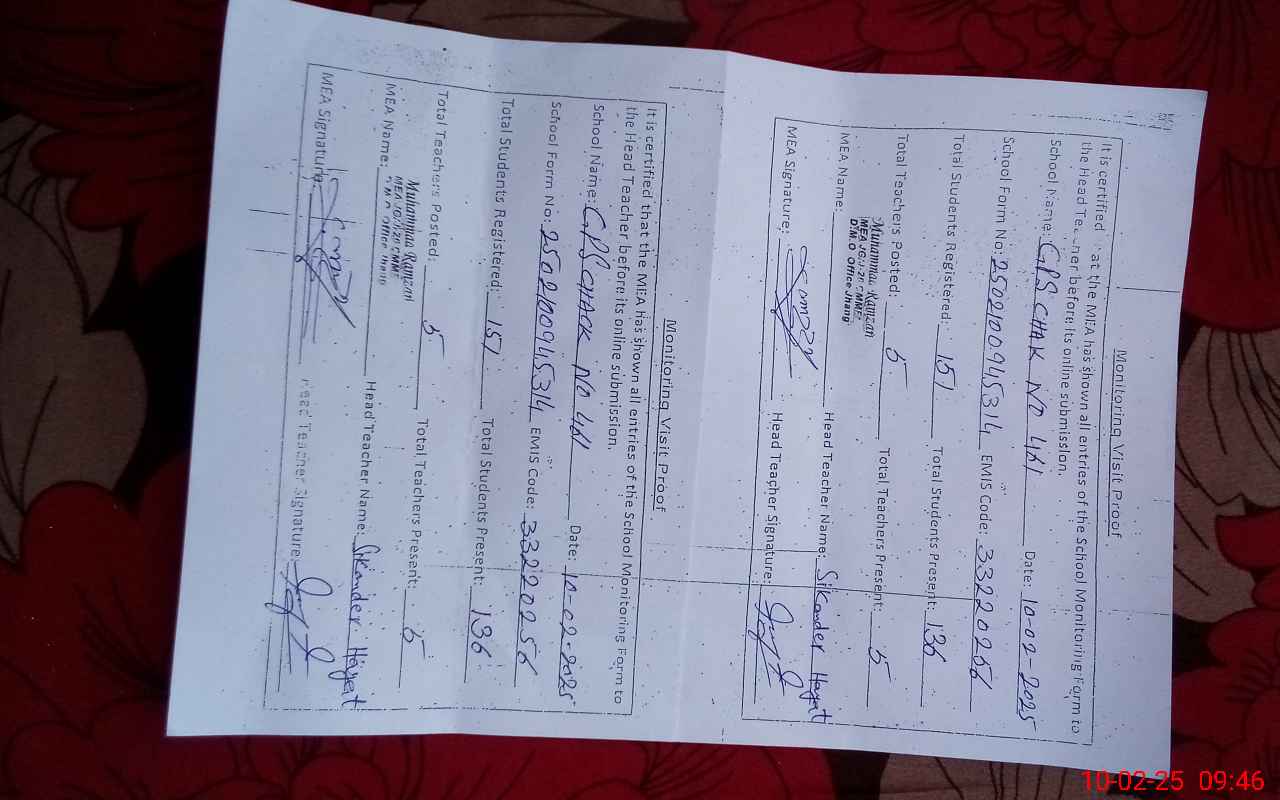 Monitoring Visit Proof
It is certified at the MEA has shown all entries of the School Monitoring Form to
the Head Teacher before its online submission.
School Name: GPS CHAK NO 441 Date: 10-02-2025
School Form No: 25021009145314 EMIS Code: 33220256
Total Students Registered: 151 Total Students Present: 136
Total Teachers Posted: 5 Total Teachers Present: 5
Muhammad Ramzan
MEA Name: Head Teacher Name: Sikander Hayat
D.M.O Office Jhang
MEA Signature: Head Teacher Signature:
Monitoring Visit Proof
It is certified that the MEA has shown all entries of the School Monitoring Form to
the Head Teacher before its online submission.
School Name: GPS CHAK NO 441 Date: 10-02-2025
School Form No: 25021009145314 EMIS Code: 33220256
Total Students Registered: 151 Total Students Present: 136
Total Teachers Posted: 5 Total Teachers Present: 5
Muhammad Ramzan
MEA Name: Head Teacher Name: Sikander Hayat
Office Jhang
MEA Signature: Head Teacher Signature:
10-02-25 09:46